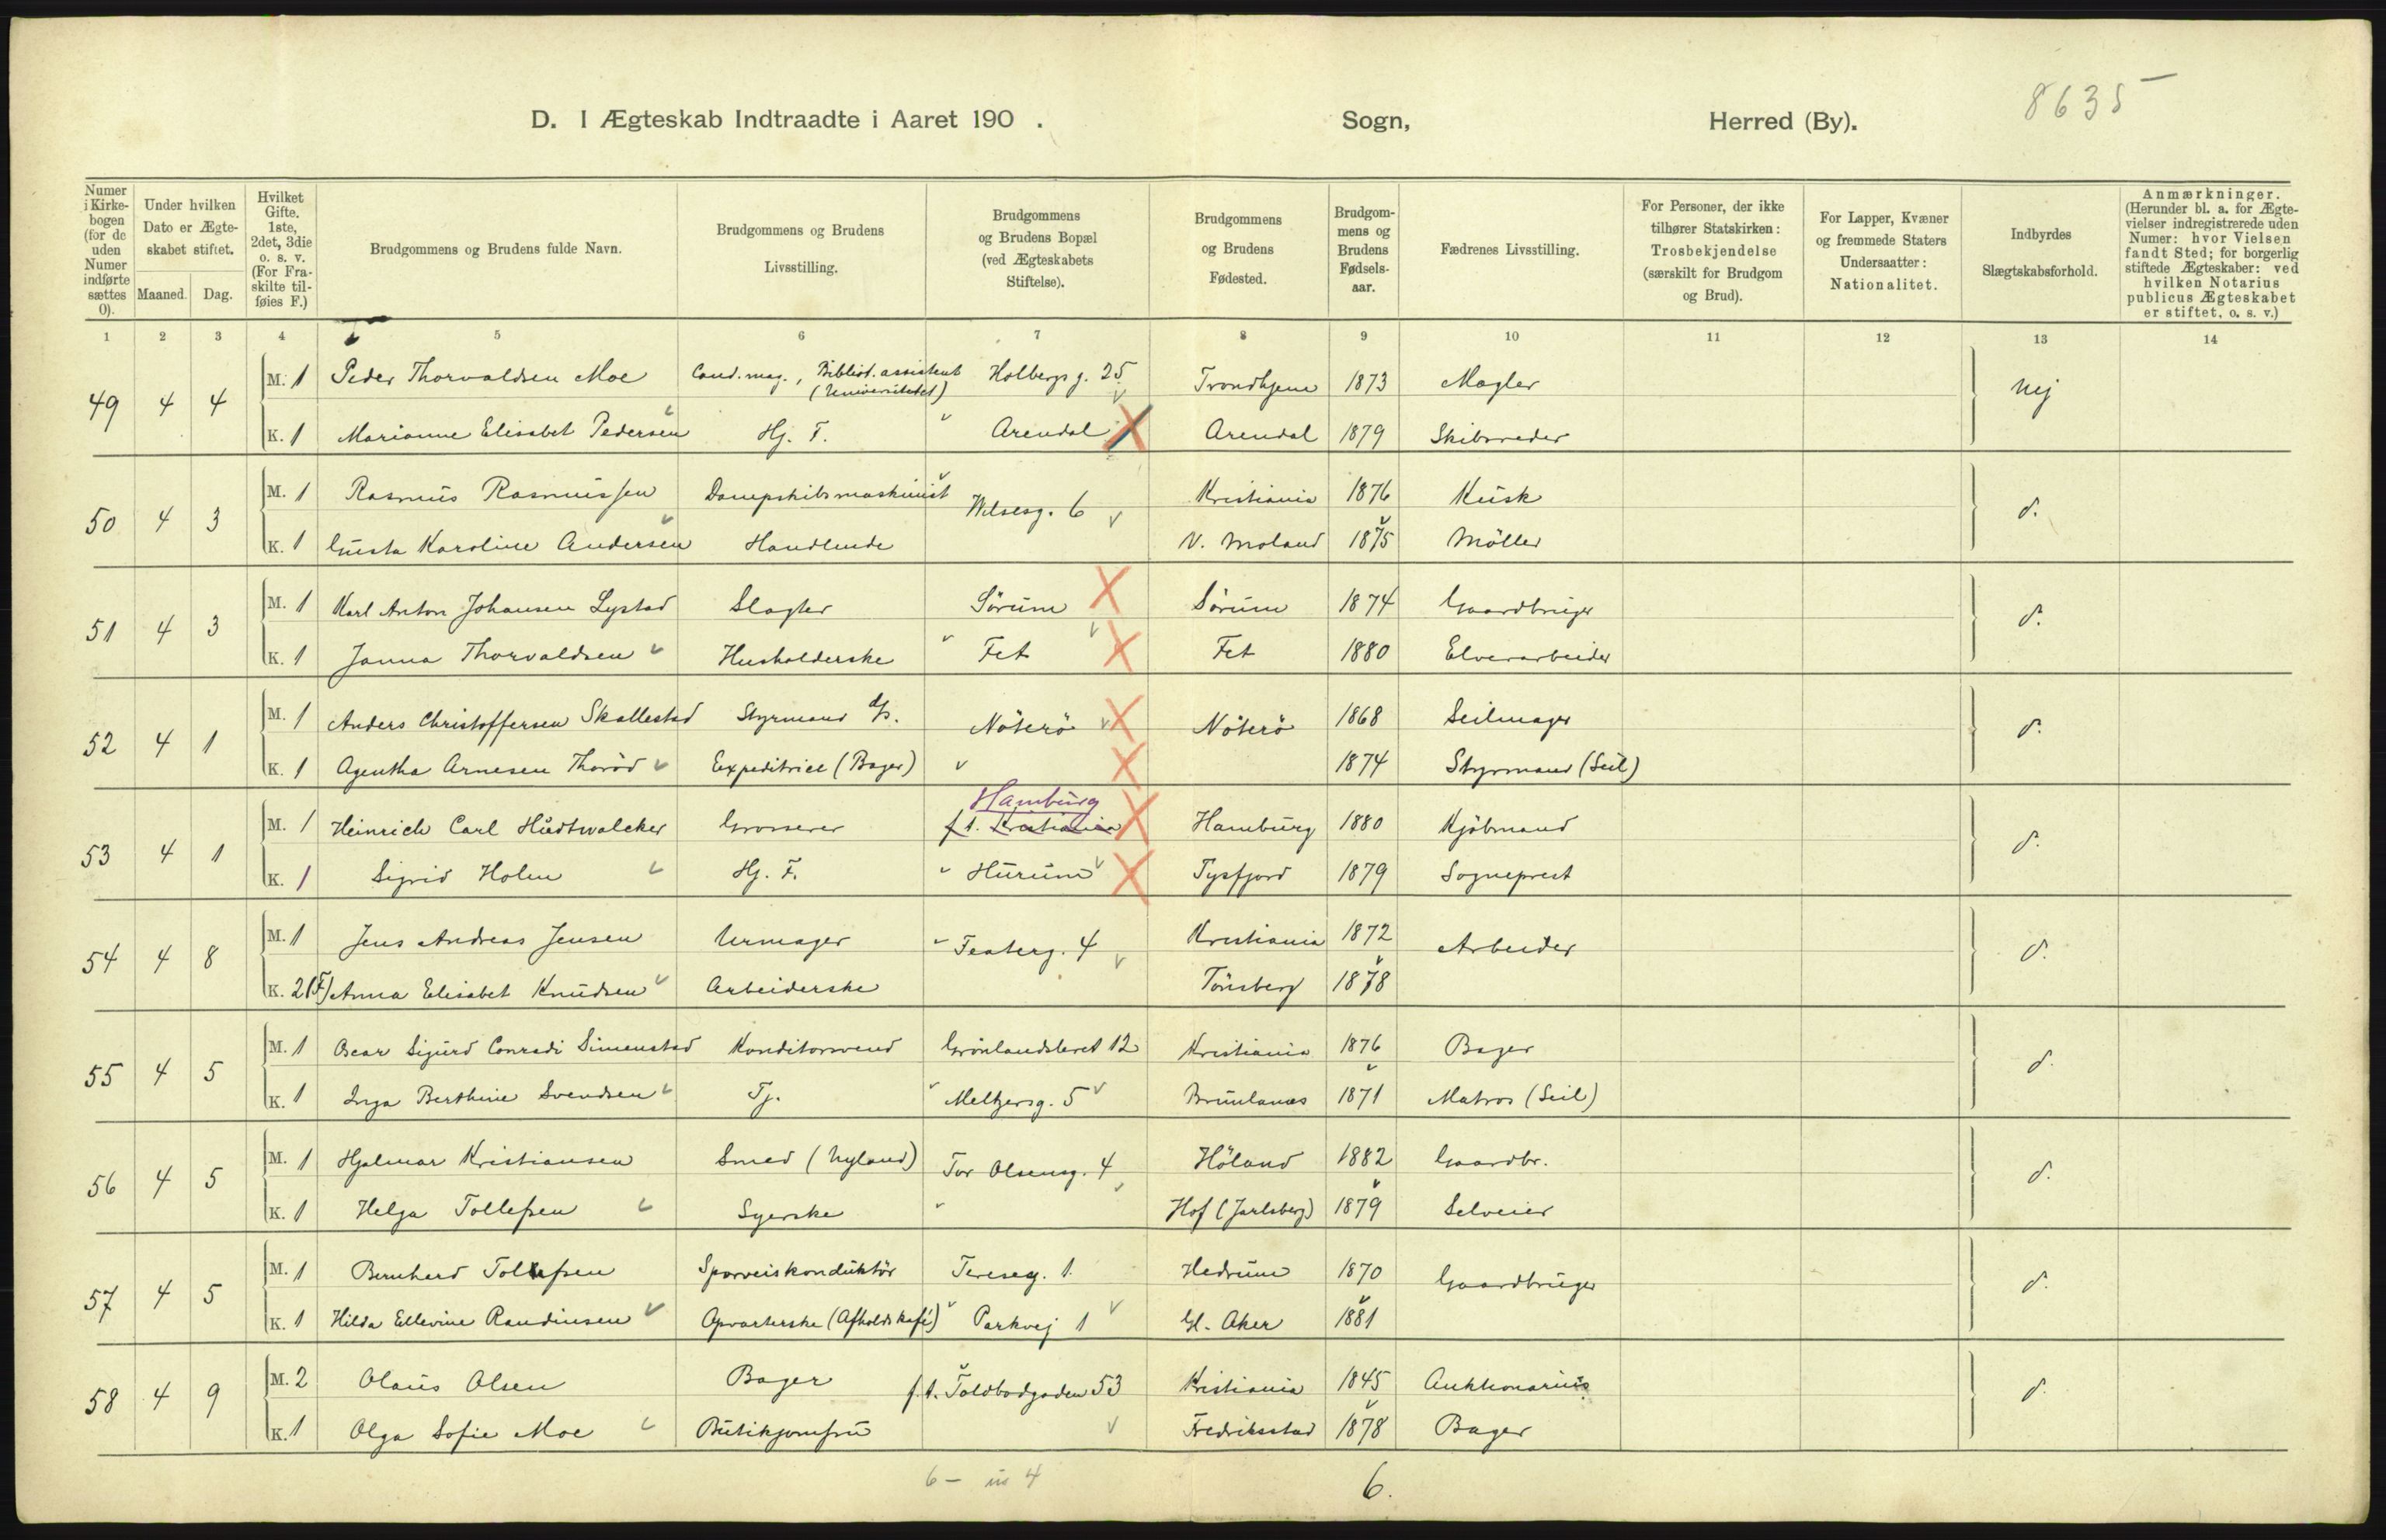 8635
D. I Ægteskab Indtraadte i Aaret 190 . Sogn, Herred (By).
Numer i Kirkebogen (for de uden Numer indførte sættes 0).
Under hvilken Dato er Ægteskabet stiftet.
Maaned. Dag.
Hvilket Gifte. 1ste, 2det, 3die o. s. v. (For Fraskilte tilføies F.)
Brudgommens og Brudens fulde Navn.
Brudgommens og Brudens Livsstilling.
Brudgommens og Brudens Bopæl (ved Ægteskabets Stiftelse).
Brudgommens og Brudens Fødested.
Brudgommens og Brudens Fødselsaar.
Fædrenes Livsstilling.
For Personer, der ikke tilhører Statskirken: Trosbekjendelse (særskilt for Brudgom og Brud).
For Lapper, Kvæner og fremmede Staters Undersaatter: Nationalitet.
Indbyrdes Slægtskabsforhold.
Anmærkninger. (Herunder bl. a. for Ægtevielser indregistrerede uden Numer: hvor Vielsen fandt Sted; for borgerlig stiftede Ægteskaber: ved hvilken Notarius publicus Ægteskabet er stiftet, o. s. v.)
1 2 3 4 5 6 7 8 9 10 11 12 13 14
49 4 4 M. 1 Peder Thorvaldsen Moe Cand. mag., Bibliot. assistent (Universitetet) Holbergs g. 25 Trondhjem 1873 Mægler nej
K. 1 Marianne Elisabet Pedersen Hj. F. Arendal Arendal 1879 Skibsreder
50 4 3 M. 1 Rasmus Rasmussen Dampskibsmaskinist Wilsesg. 6 Kristiania 1876 Kusk d.
K. 1 Gusta Karoline Andersen Handlende V. Moland 1875 Möller
51 4 3 M. 1 Karl Anton Johansen Lystad Slagter Sörum Sörum 1874 Gaardbruger d.
K. 1 Janna Thorvaldsen Husholderske Fet Fet 1880 Elvearbeider
52 4 1 M. 1 Anders Christoffersen Skallestad Styrmand d/s. Nöterö Nöterö 1868 Seilmager d.
K. 1 Agentha Arnesen Thoröd Expeditrice (Bager) 1874 Styrmand (Seil)
Hamburg
53 4 1 M. 1 Heinrich Carl Hudtwalcker Grosserer f. t. Kristiania Hamburg 1880 Kjöbmand d.
K. 1 Sigrid Holm Hj. F. Hurum Tysfjord 1879 Sogneprest
54 4 8 M. 1 Jens Andreas Jensen Urmager Teaterg. 4 Kristiania 1872 Arbeider d.
K. 2(F) Anna Elisabet Knudsen Arbeiderske Tönsberg 1878
55 4 5 M. 1 Oscar Sigurd Conradi Simenstad Konditorsvend Grönlandsleret 12 Kristiania 1876 Bager d.
K. 1 Inga Berthine Svendsen Tj. Meltzersg. 5 Brunlanæs 1871 Matros (Seil)
56 4 5 M. 1 Hjalmar Kristiansen Smed (Nyland) Tor Olsensg. 4 Höland 1882 Gaardbr. d.
K. 1 Helga Tollefsen Syerske Hof (Jarlsberg) 1879 Selveier
57 4 5 M. 1 Bernhard Tollefsen Sporveiskonduktör Teresesg. 1. Hedrum 1870 Gaardbruger d.
K. 1 Hilda Ellevine Randinsen Opvarterske (Afholdskafé) Parkvej 1 Gl. Aker 1881
58 4 9 M. 2 Olaus Olsen Bager f. t. Toldbodgaden 53 Kristiania 1845 Auktionarius d.
K. 1 Olga Sofie Moe Butikjomfru Fredriksstad 1878 Bager
6 –
6.